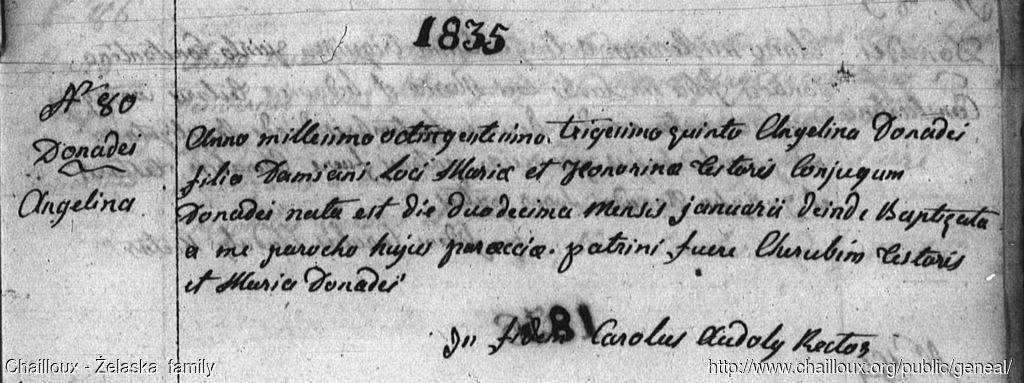 1835
Nº 80
Donadei
Angelina
Anno millesimo octingentesimo. trigesimo quinto Angelina Donadei
filia Damiani Loci Mariæ et Honorinæ Testoris Conjugum
Donadei nata est die duodecima mensis januarii deinde Baptizata
a me parocho hujus paræciæ. patrini fuere Cherubim Testoris
et Maria Donadei
In fidem Carolus Audoly Rector
Chailloux - Żelaska family
http://www.chailloux.org/public/geneal/